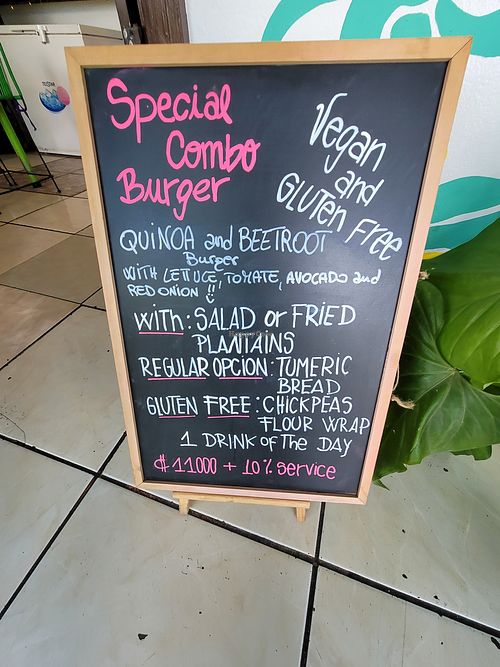 Special
Combo
Burger
Vegan
and
GLUTEN FREE
QUINOA and BEETROOT
Burger
WITH LETUCE, TOMATE, AVOCADO and
RED ONION !!
WITH: SALAD or FRIED
PLANTAINS
REGULAR OPCION: TUMERIC
BREAD
GLUTEN FREE: CHICKPEAS
FLOUR WRAP
1 DRINK OF The DAY
₡ 11000 + 10% service